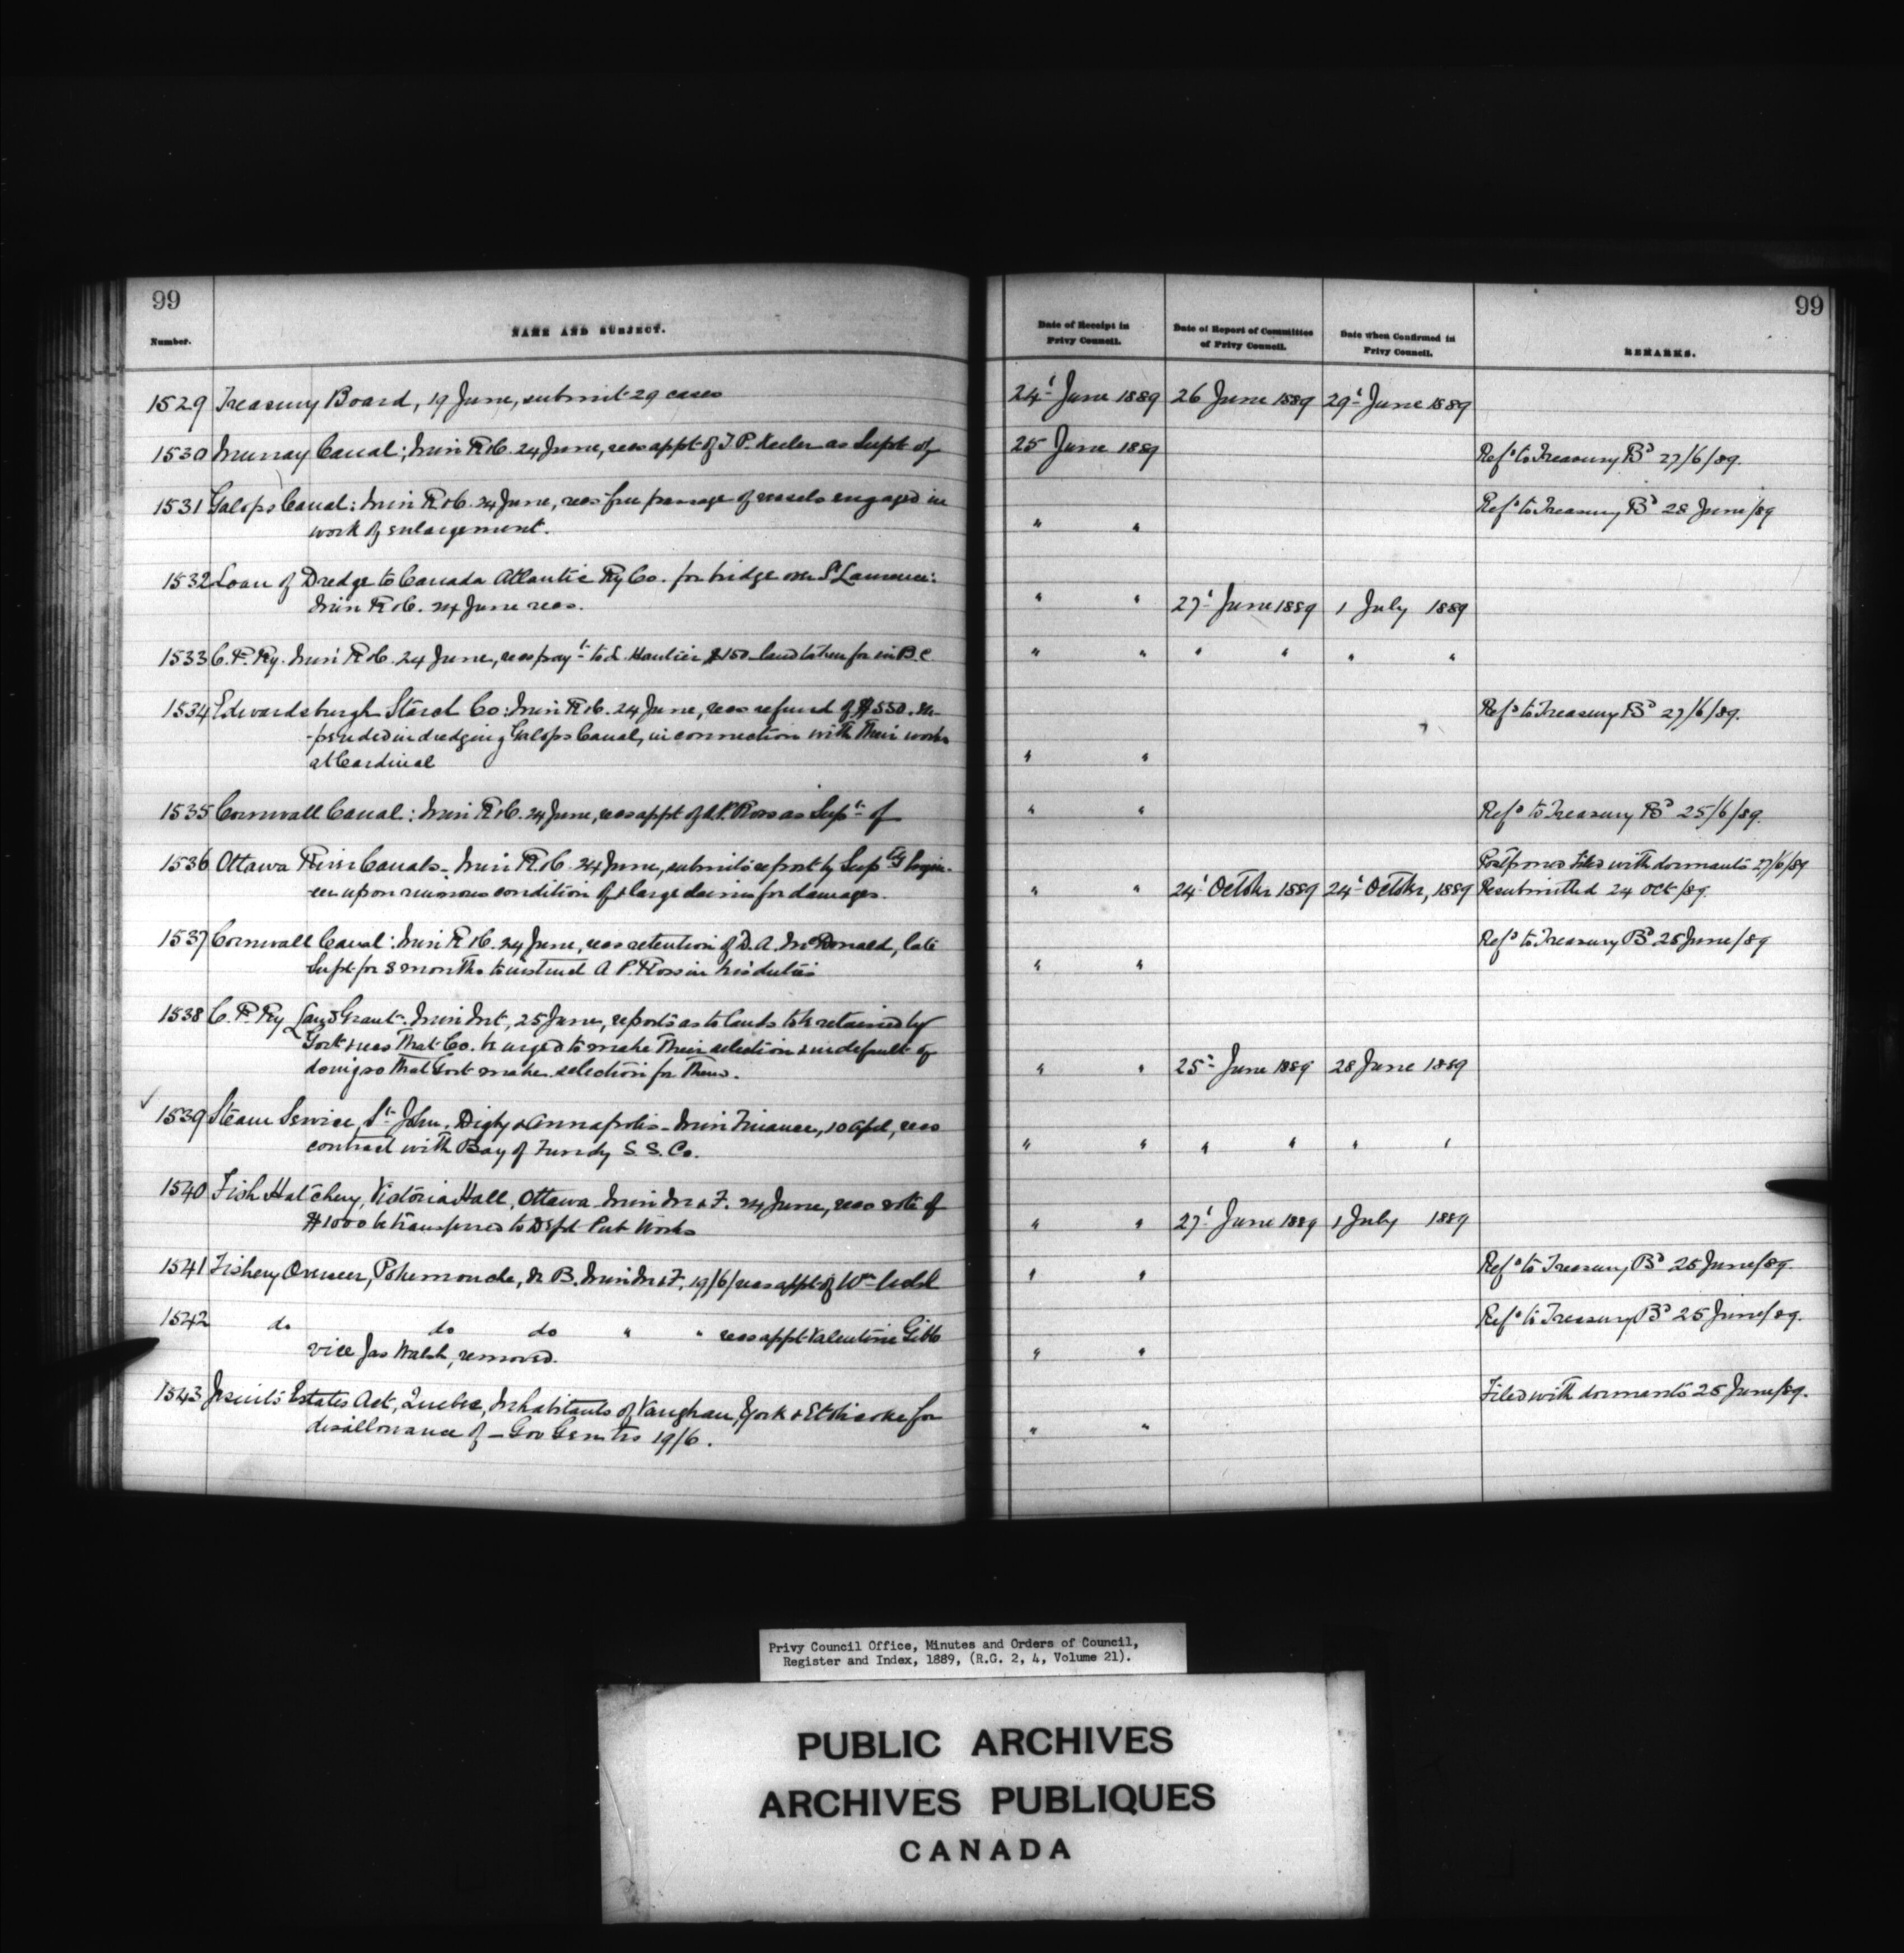 99
99
Number.
NAME AND SUBJECT.
Date of Receipt in
Privy Council.
Date of Report of Committee
of Privy Council.
Date when Confirmed in
Privy Council.
REMARKS.
1529 Treasury Board, 19 June, submit 29 cases
24' June 1889 26 June 1889 29' June 1889
1530 Murray Canal; Min R & C. 24 June, recs appt of T. P. Keeler as Supt of
25 June 1889
Refd to Treasury Bd 27/6/89.
1531 Galops Canal: Min R & C. 24 June, recs free passage of vessels engaged in
Refd to Treasury Bd 28 June/89
work of enlargement.
" "
1532 Loan of Dredge to Canada Atlantic Ry Co. for bridge over St Lawrence:
Min R & C. 24 June recs.
" " 27' June 1889 1 July 1889
1533 C. P. Ry. Min R & C. 24 June, recs payt to L. Hautier $150 land taken for in B.C
" " " " " "
1534 Edwardsburgh Starch Co: Min R & C. 24 June, recs refund of $550. ex-
Refd to Treasury Bd 27/6/89.
-pended in dredging Galops Canal, in connection with their works
at Cardinal
" "
1535 Cornwall Canal: Min R & C. 24 June, recs appt of A. P. Ross as Supt of
" "
Refd to Treasury Bd 25/6/89.
1536 Ottawa River Canals. Min R & C. 24 June, submits report by Suptg Engin-
Postponed Filed with dormants 27/6/89
-eer upon ruinous condition of & large claims for damages.
" " 24' October 1889 24' October, 1889 Resubmitted 24 Oct/89.
1537 Cornwall Canal: Min R & C. 24 June, recs retention of D. A. McDonald, late
Refd to Treasury Bd 25 June/89
Supt for 3 months to instruct A P. Ross in his duties
" "
1538 C. P. Ry Land Grant. Min Int, 25 June, reports as to lands to be retained by
Govt & recs that Co. be urged to make their selection & in default of
doing so that Govt make selection for them.
" " 25' June 1889 28 June 1889
1539 Steam Service, St John, Digby & Annapolis. Min Finance, 10 Apl, recs
contract with Bay of Fundy S. S. Co.
" " " " " "
1540 Fish Hatchery, Victoria Hall, Ottawa. Min M & F. 24 June, recs vote of
$1000 be transferred to Dept Pub Works
" " 27' June 1889 1 July 1889
1541 Fishery Overseer, Pokemouche, N B. Min M & F. 19/6/ recs appt of Wm
" "
Refd to Treasury Bd 25 June/89.
1542 do do do " " recs appt Valentine Gibbs
Refd to Treasury Bd 25 June/89.
vice Jas Walsh, removed.
" "
1543 Jesuits Estates Act, Quebec, Inhabitants of Vaughan, York & Etobicoke for
Filed with dormants 25 June/89.
disallowance of - Gov Gen 19/6.
" "
Privy Council Office, Minutes and Orders of Council,
Register and Index, 1889, (R.G. 2, 4, Volume 21).
PUBLIC ARCHIVES
ARCHIVES PUBLIQUES
CANADA